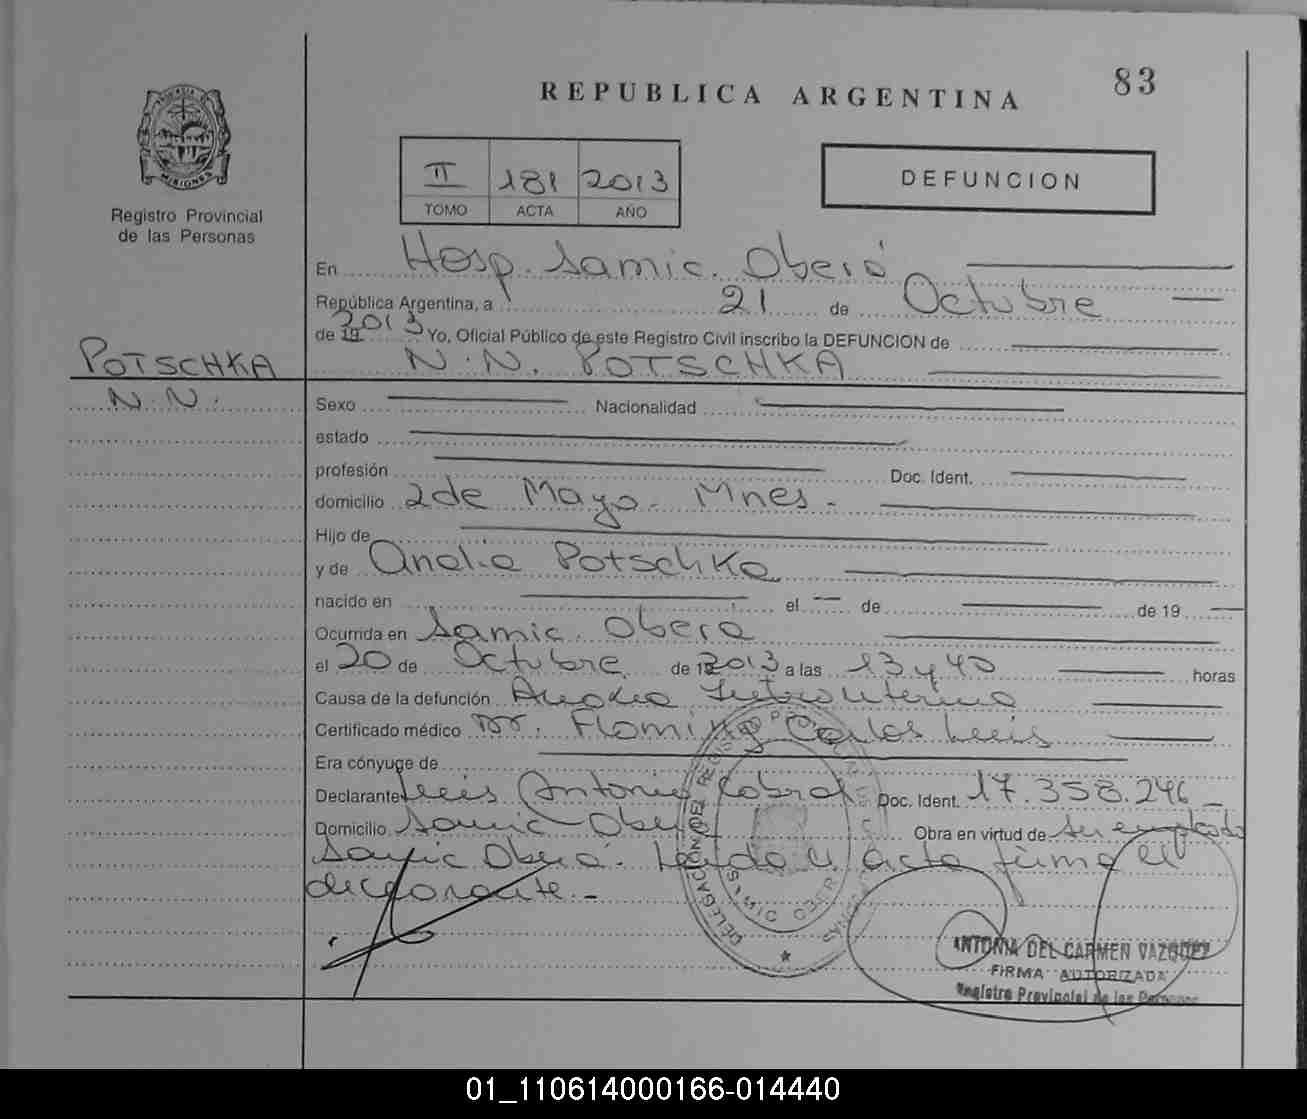 83
REPUBLICA ARGENTINA
II 181 2013
TOMO ACTA AÑO
DEFUNCION
PROVINCIA DE
MISIONES
Registro Provincial
de las Personas
En Hosp. Samic. Oberá
República Argentina, a 21 de Octubre
de 19 2013 Yo, Oficial Público de este Registro Civil inscribo la DEFUNCION de
POTSCHKA
N. N. POTSCHKA
N. N.
Sexo Nacionalidad
estado
profesión Doc. Ident.
domicilio 2 de Mayo. Mnes -
Hijo de
y de Analia Potschka
nacido en el de de 19
Ocurrida en Samic. Oberá
el 20 de Octubre de 2013 a las 13 y 40 horas
Causa de la defunción Anoxia Intrauterina
Certificado médico Dr. Fleming Carlos Luis
Era cónyuge de
Declarante Luis Antonio Cabral Doc. Ident. 17.358.246 -
Domicilio Samic Oberá Obra en virtud de Ser empleado
Samic Oberá. Leída el acta firma el
declarante. -
DELEGACIÓN DEL
ANTONIA DEL CARMEN VAZQUEZ
FIRMA AUTORIZADA
Registro Provincial de las Personas
01_110614000166-014440